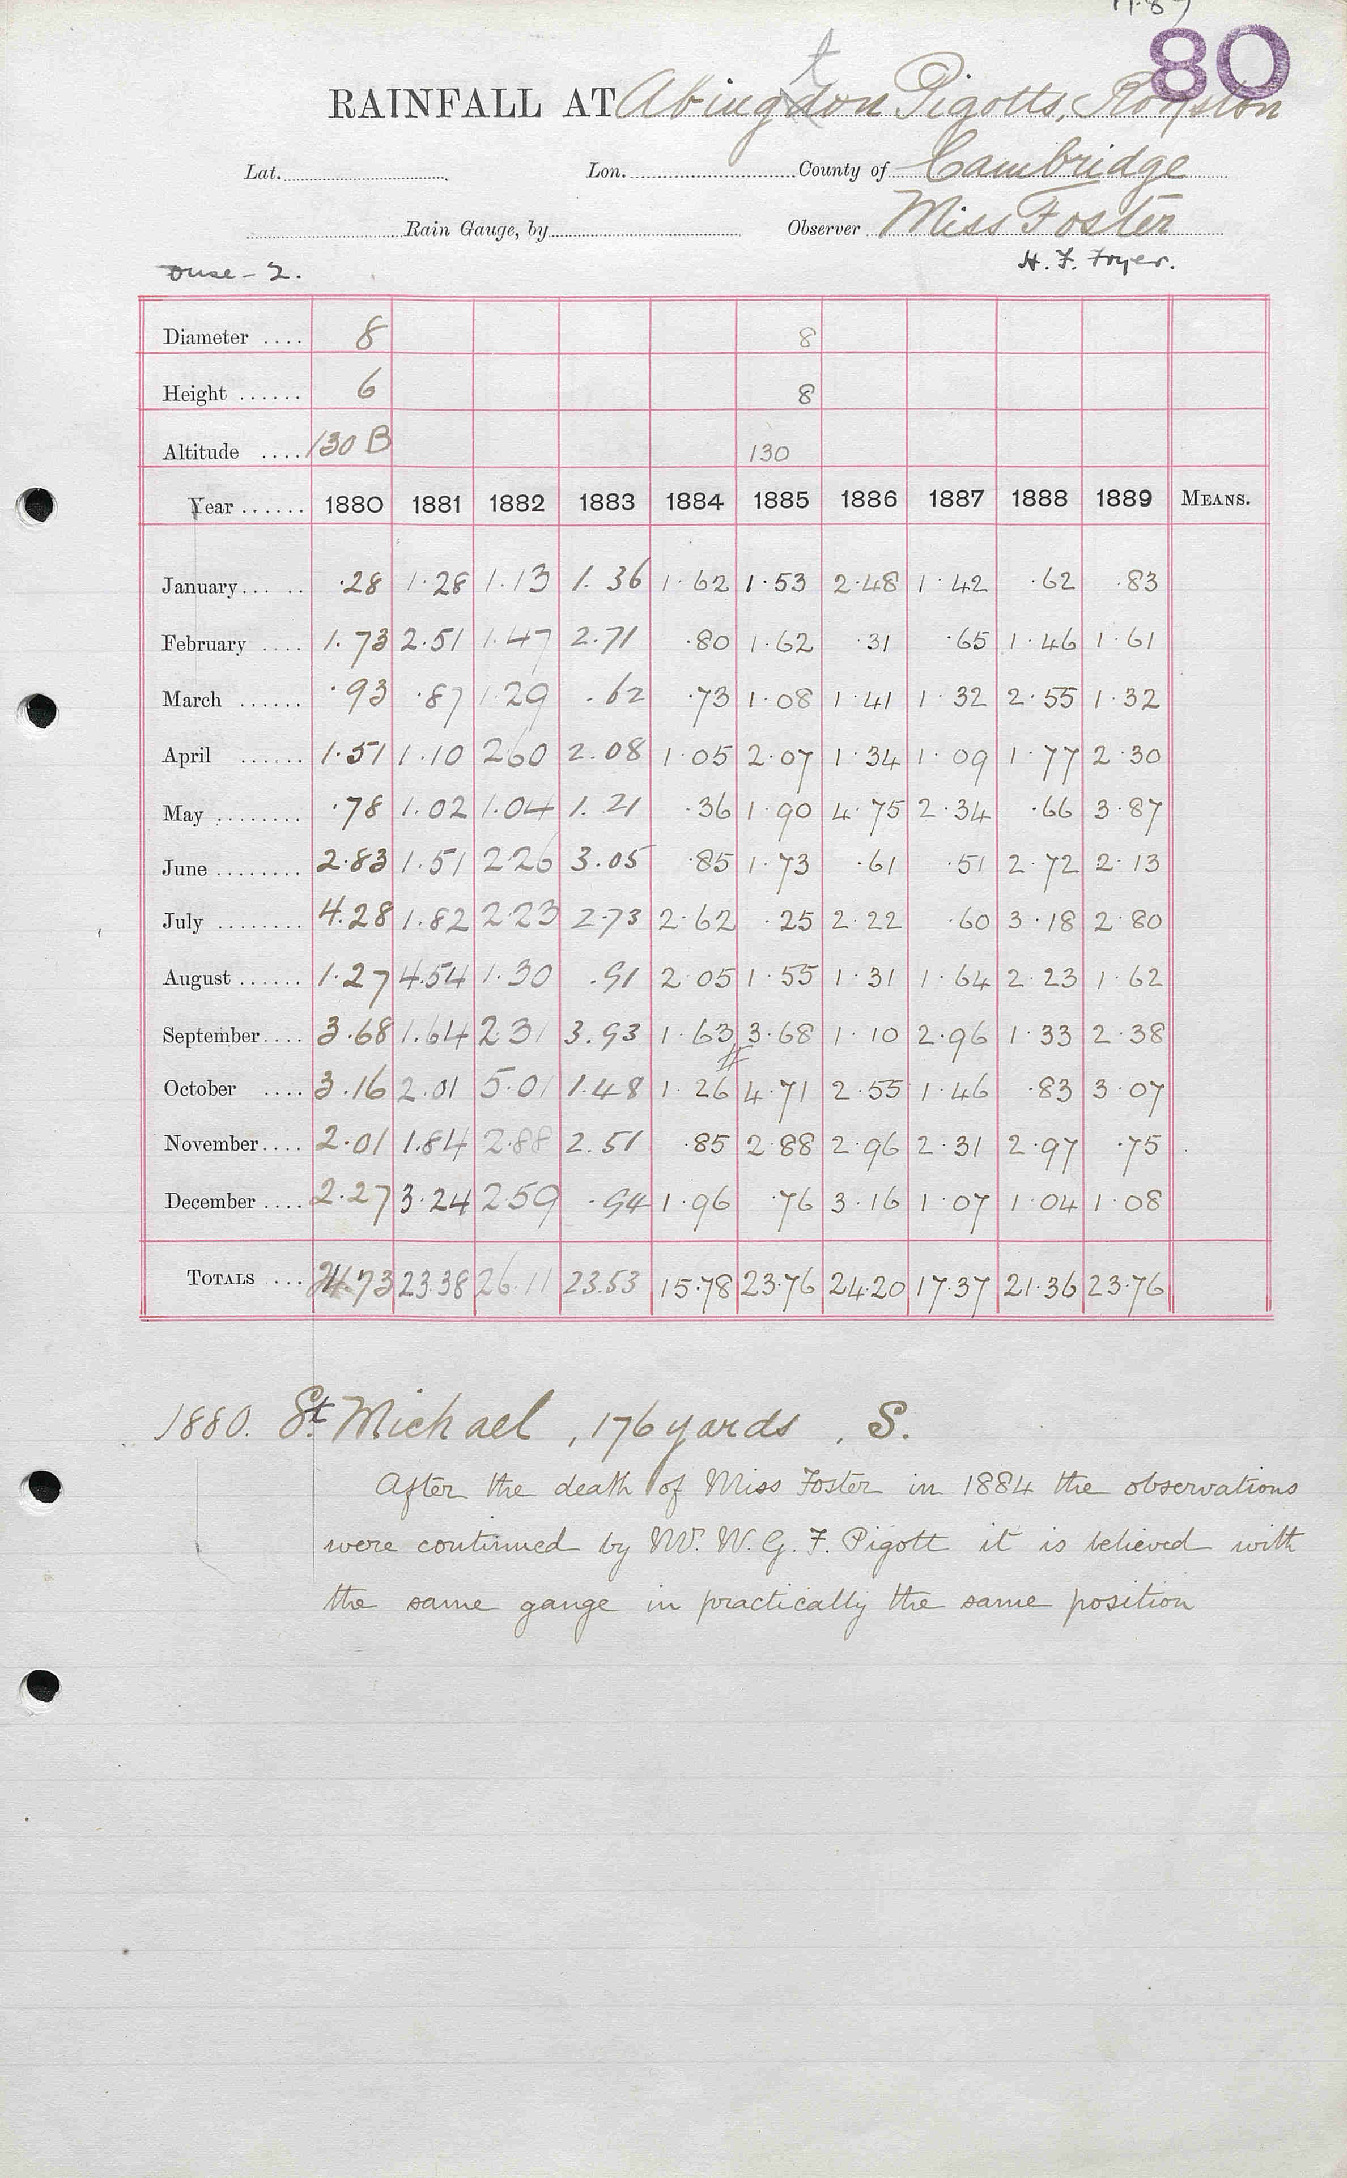 80
RAINFALL AT Abington Pigotts, Royston
Lat. Lon. County of Cambridge
Rain Gauge, by Observer Miss Foster
Ouse - 2. H. F. Fryer.
Diameter .... 8 8
Height ...... 6 8
Altitude .... 130 B 130
Year ...... 1880 1881 1882 1883 1884 1885 1886 1887 1888 1889 MEANS.
January... .. ·28 1·28 1·13 1.36 1·62 1·53 2·48 1·42 ·62 ·83
February .... 1.73 2·51 1·47 2.71 ·80 1·62 ·31 ·65 1·46 1·61
March ...... ·93 ·87 1·29 .62 ·73 1·08 1·41 1·32 2·55 1·32
April ...... 1·51 1·10 2 60 2.08 1·05 2·07 1·34 1·09 1·77 2·30
May ........ ·78 1.02 1·04 1.21 ·36 1·90 4·75 2·34 ·66 3·87
June ........ 2·83 1·51 2 26 3.05 ·85 1·73 ·61 ·51 2·72 2·13
July ........ 4.28 1.82 2 23 2·73 2·62 ·25 2·22 ·60 3·18 2·80
August ...... 1·27 4.54 1·30 .91 2·05 1·55 1·31 1·64 2·23 1·62
September.... 3·68 1.64 2 31 3.93 1·63 3·68 1·10 2·96 1·33 2·38
October .... 3.16 2.01 5·01 1.48 1·26 4·71 2·55 1·46 ·83 3·07
November.... 2·01 1.84 2·88 2.51 ·85 2·88 2·96 2·31 2·97 ·75
December .... 2.27 3·24 2 59 ·94 1·96 ·76 3·16 1·07 1·04 1·08
TOTALS ... 24.73 23.38 26·11 23.53 15·78 23·76 24·20 17·37 21·36 23·76
1880. St. Michael, 176 yards, S.
After the death of Miss Foster in 1884 the observations
were continued by Mr. W. G. F. Pigott it is believed with
the same gauge in practically the same position